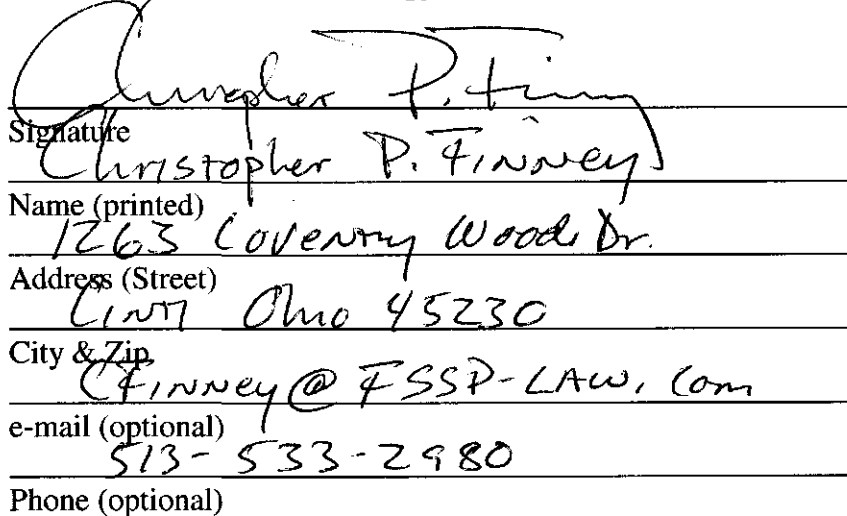 Christopher P. Finney
Signature
Christopher P. Finney
Name (printed)
1263 Coventry Woods Dr.
Address (Street)
Cinti Ohio 45230
City & Zip
CFinney@FSSP-LAW.com
e-mail (optional)
513-533-2980
Phone (optional)